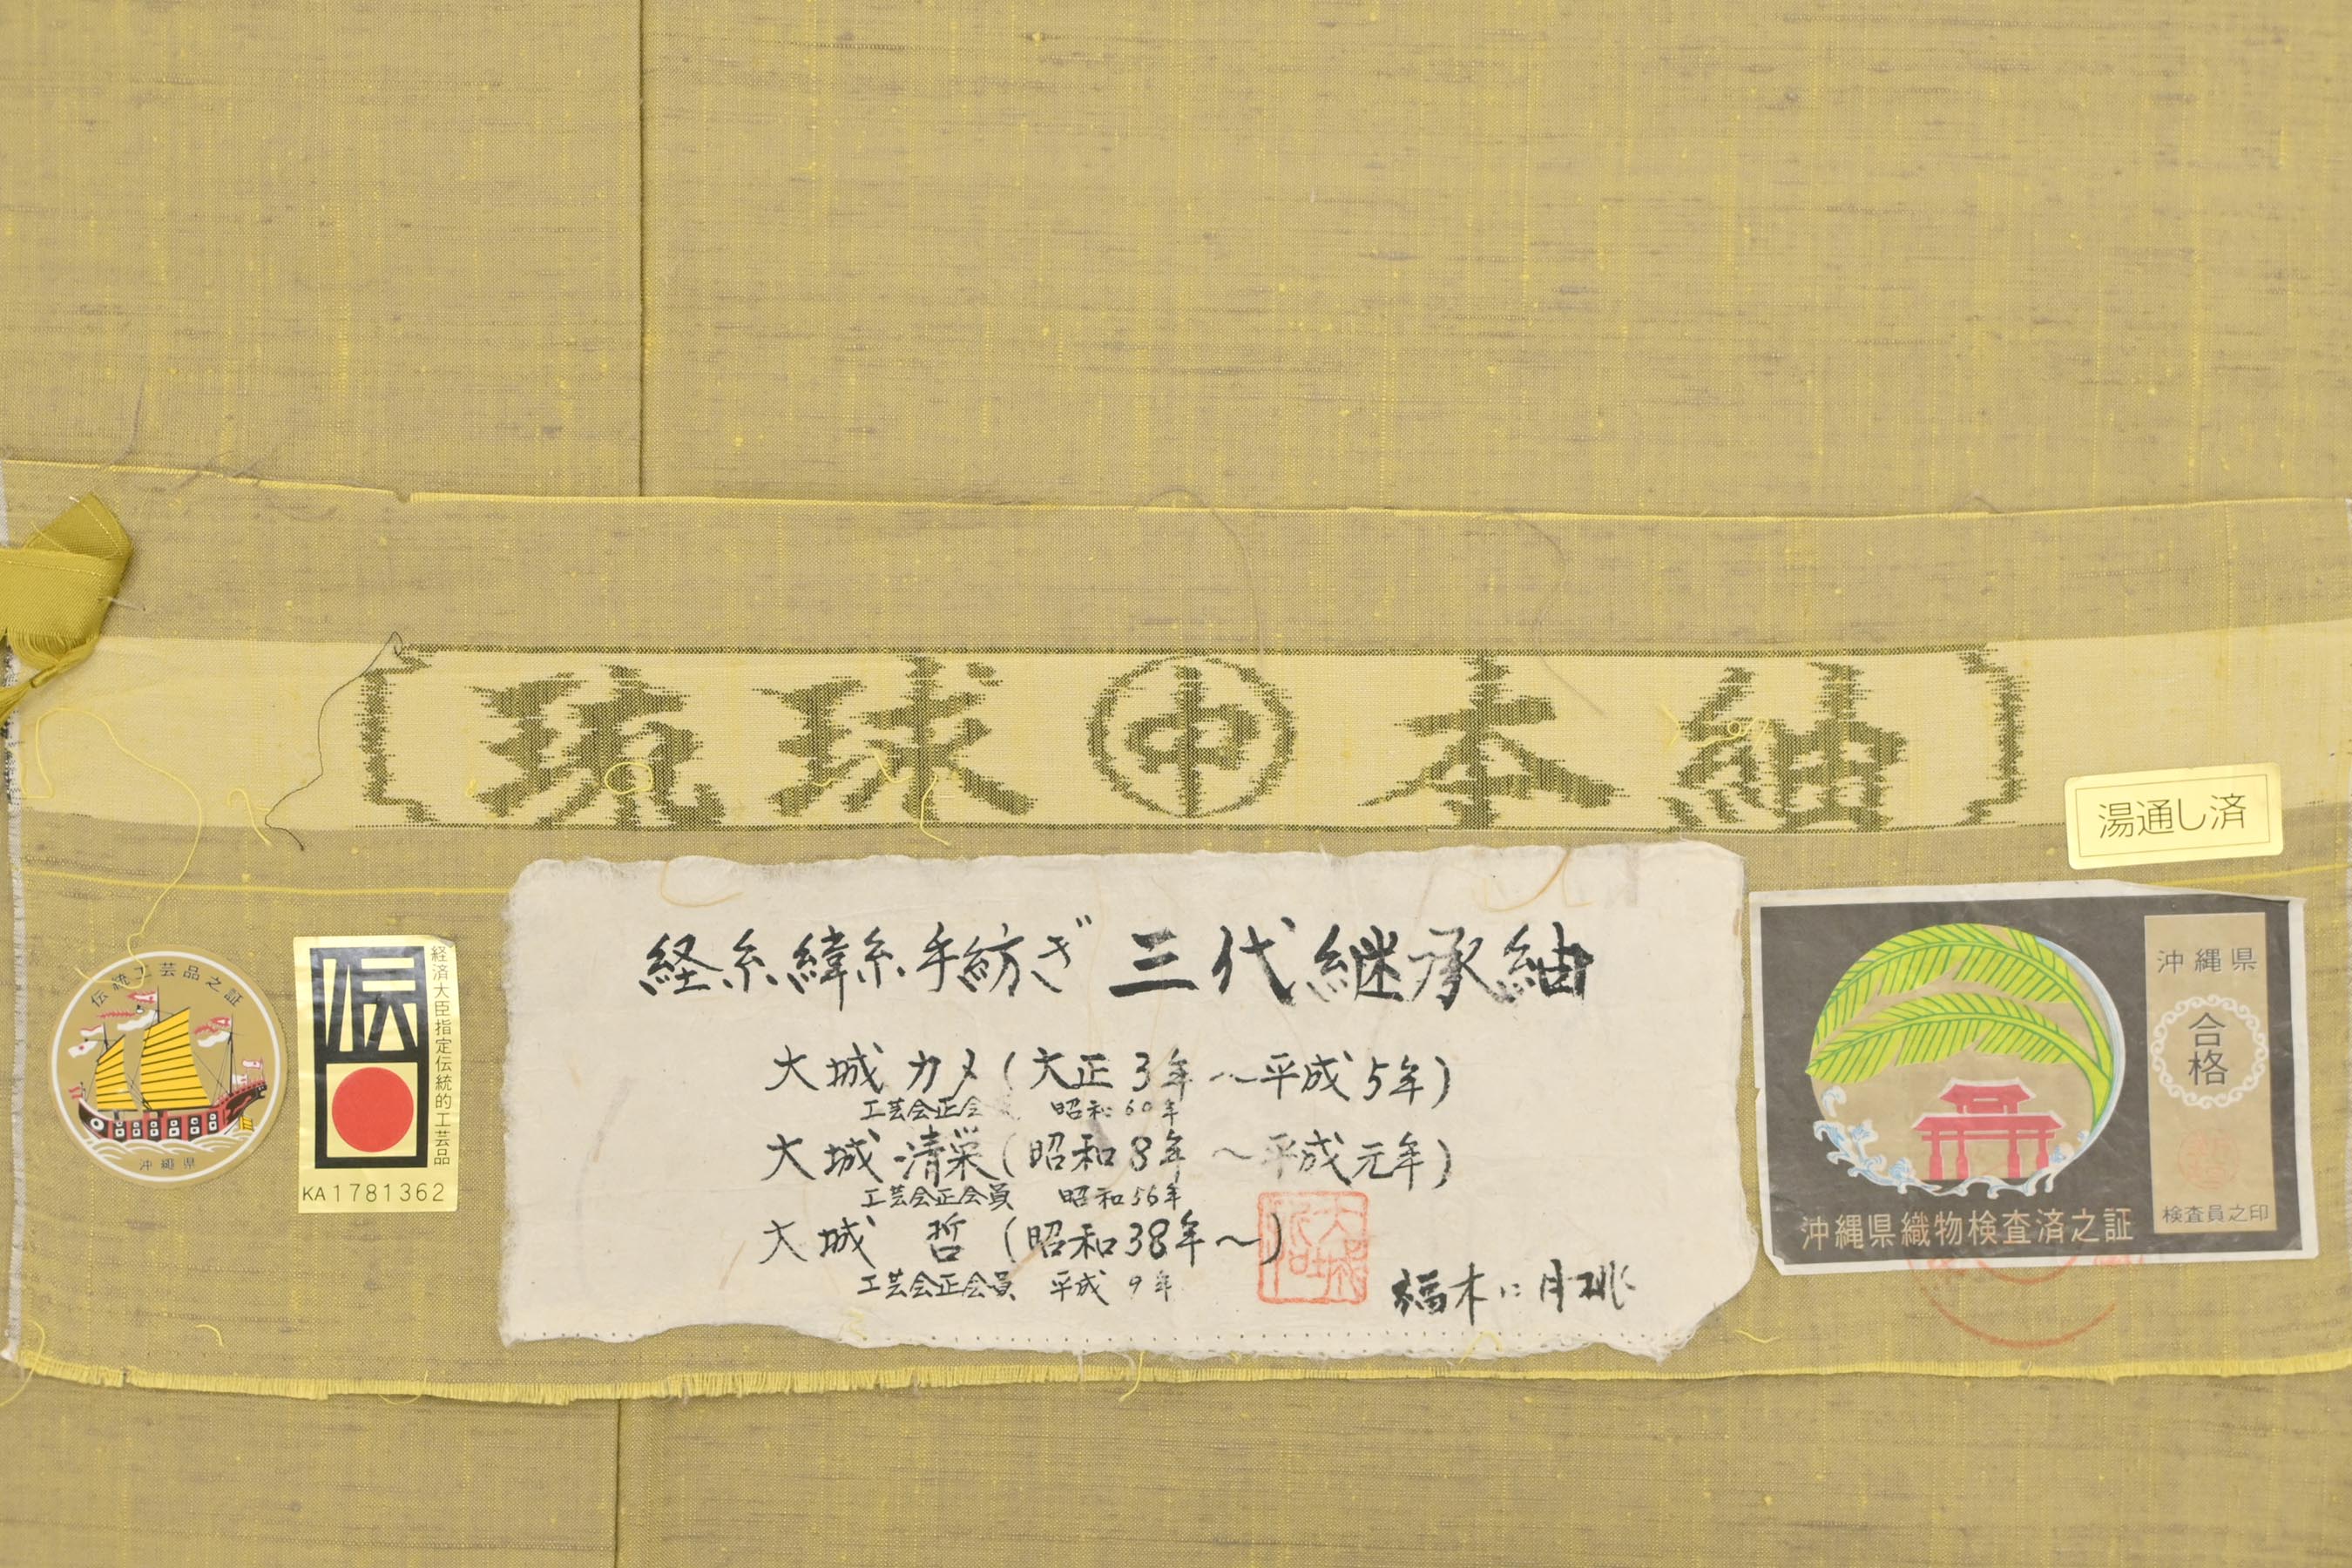 琉球㊥本紬
湯通し済
伝統工芸品之証
沖縄県
伝
経済大臣指定伝統的工芸品
KA1781362
経糸緯糸手紡ぎ 三代継承紬
大城 カメ(大正3年〜平成5年)
工芸会正会 昭和60年
大城 清栄(昭和8年〜平成元年)
工芸会正会員 昭和56年
大城 哲(昭和38年〜)
工芸会正会員 平成9年
福木に月桃
沖縄県
合格
検査員之印
沖縄県織物検査済之証